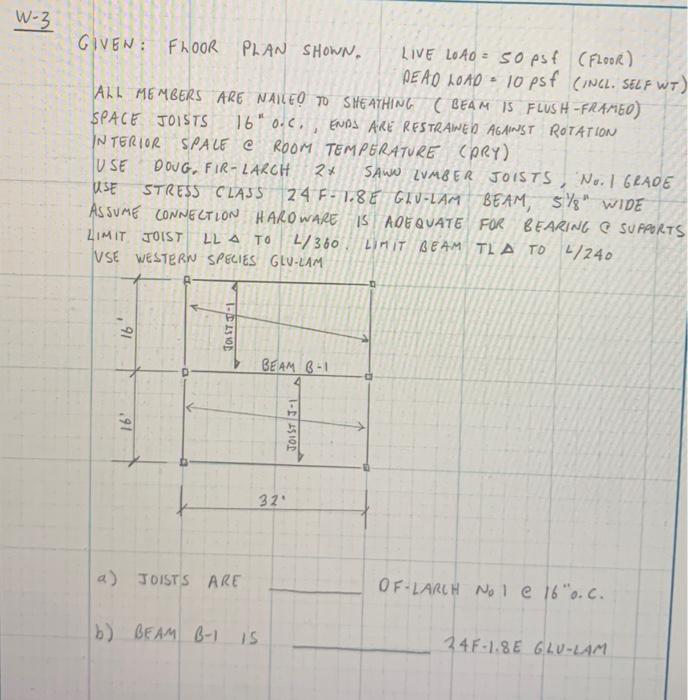 W-3
GIVEN: FLOOR PLAN SHOWN. LIVE LOAD = 50 psf (FLOOR)
DEAD LOAD = 10 psf (INCL. SELF WT)
ALL MEMBERS ARE NAILED TO SHEATHING (BEAM IS FLUSH-FRAMED)
SPACE JOISTS 16" O.C., ENDS ARE RESTRAINED AGAINST ROTATION
INTERIOR SPACE @ ROOM TEMPERATURE (DRY)
USE DOUG. FIR-LARCH 2x SAWN LUMBER JOISTS, No. 1 GRADE
USE STRESS CLASS 24F-1.8E GLU-LAM BEAM, 5 1/8" WIDE
ASSUME CONNECTION HARDWARE IS ADEQUATE FOR BEARING @ SUPPORTS
LIMIT JOIST LL Δ TO L/360. LIMIT BEAM TL Δ TO L/240
USE WESTERN SPECIES GLU-LAM
16'
JOIST J-1
BEAM B-1
16'
JOIST J-1
32'
a) JOISTS ARE ________ DF-LARCH No 1 @ 16" o.c.
b) BEAM B-1 IS ________ 24F-1.8E GLU-LAM